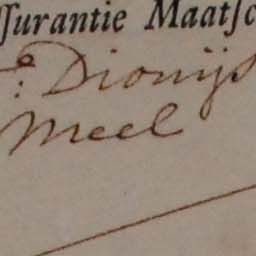 ſſurantie Maatſc
: Dionijs
Meel